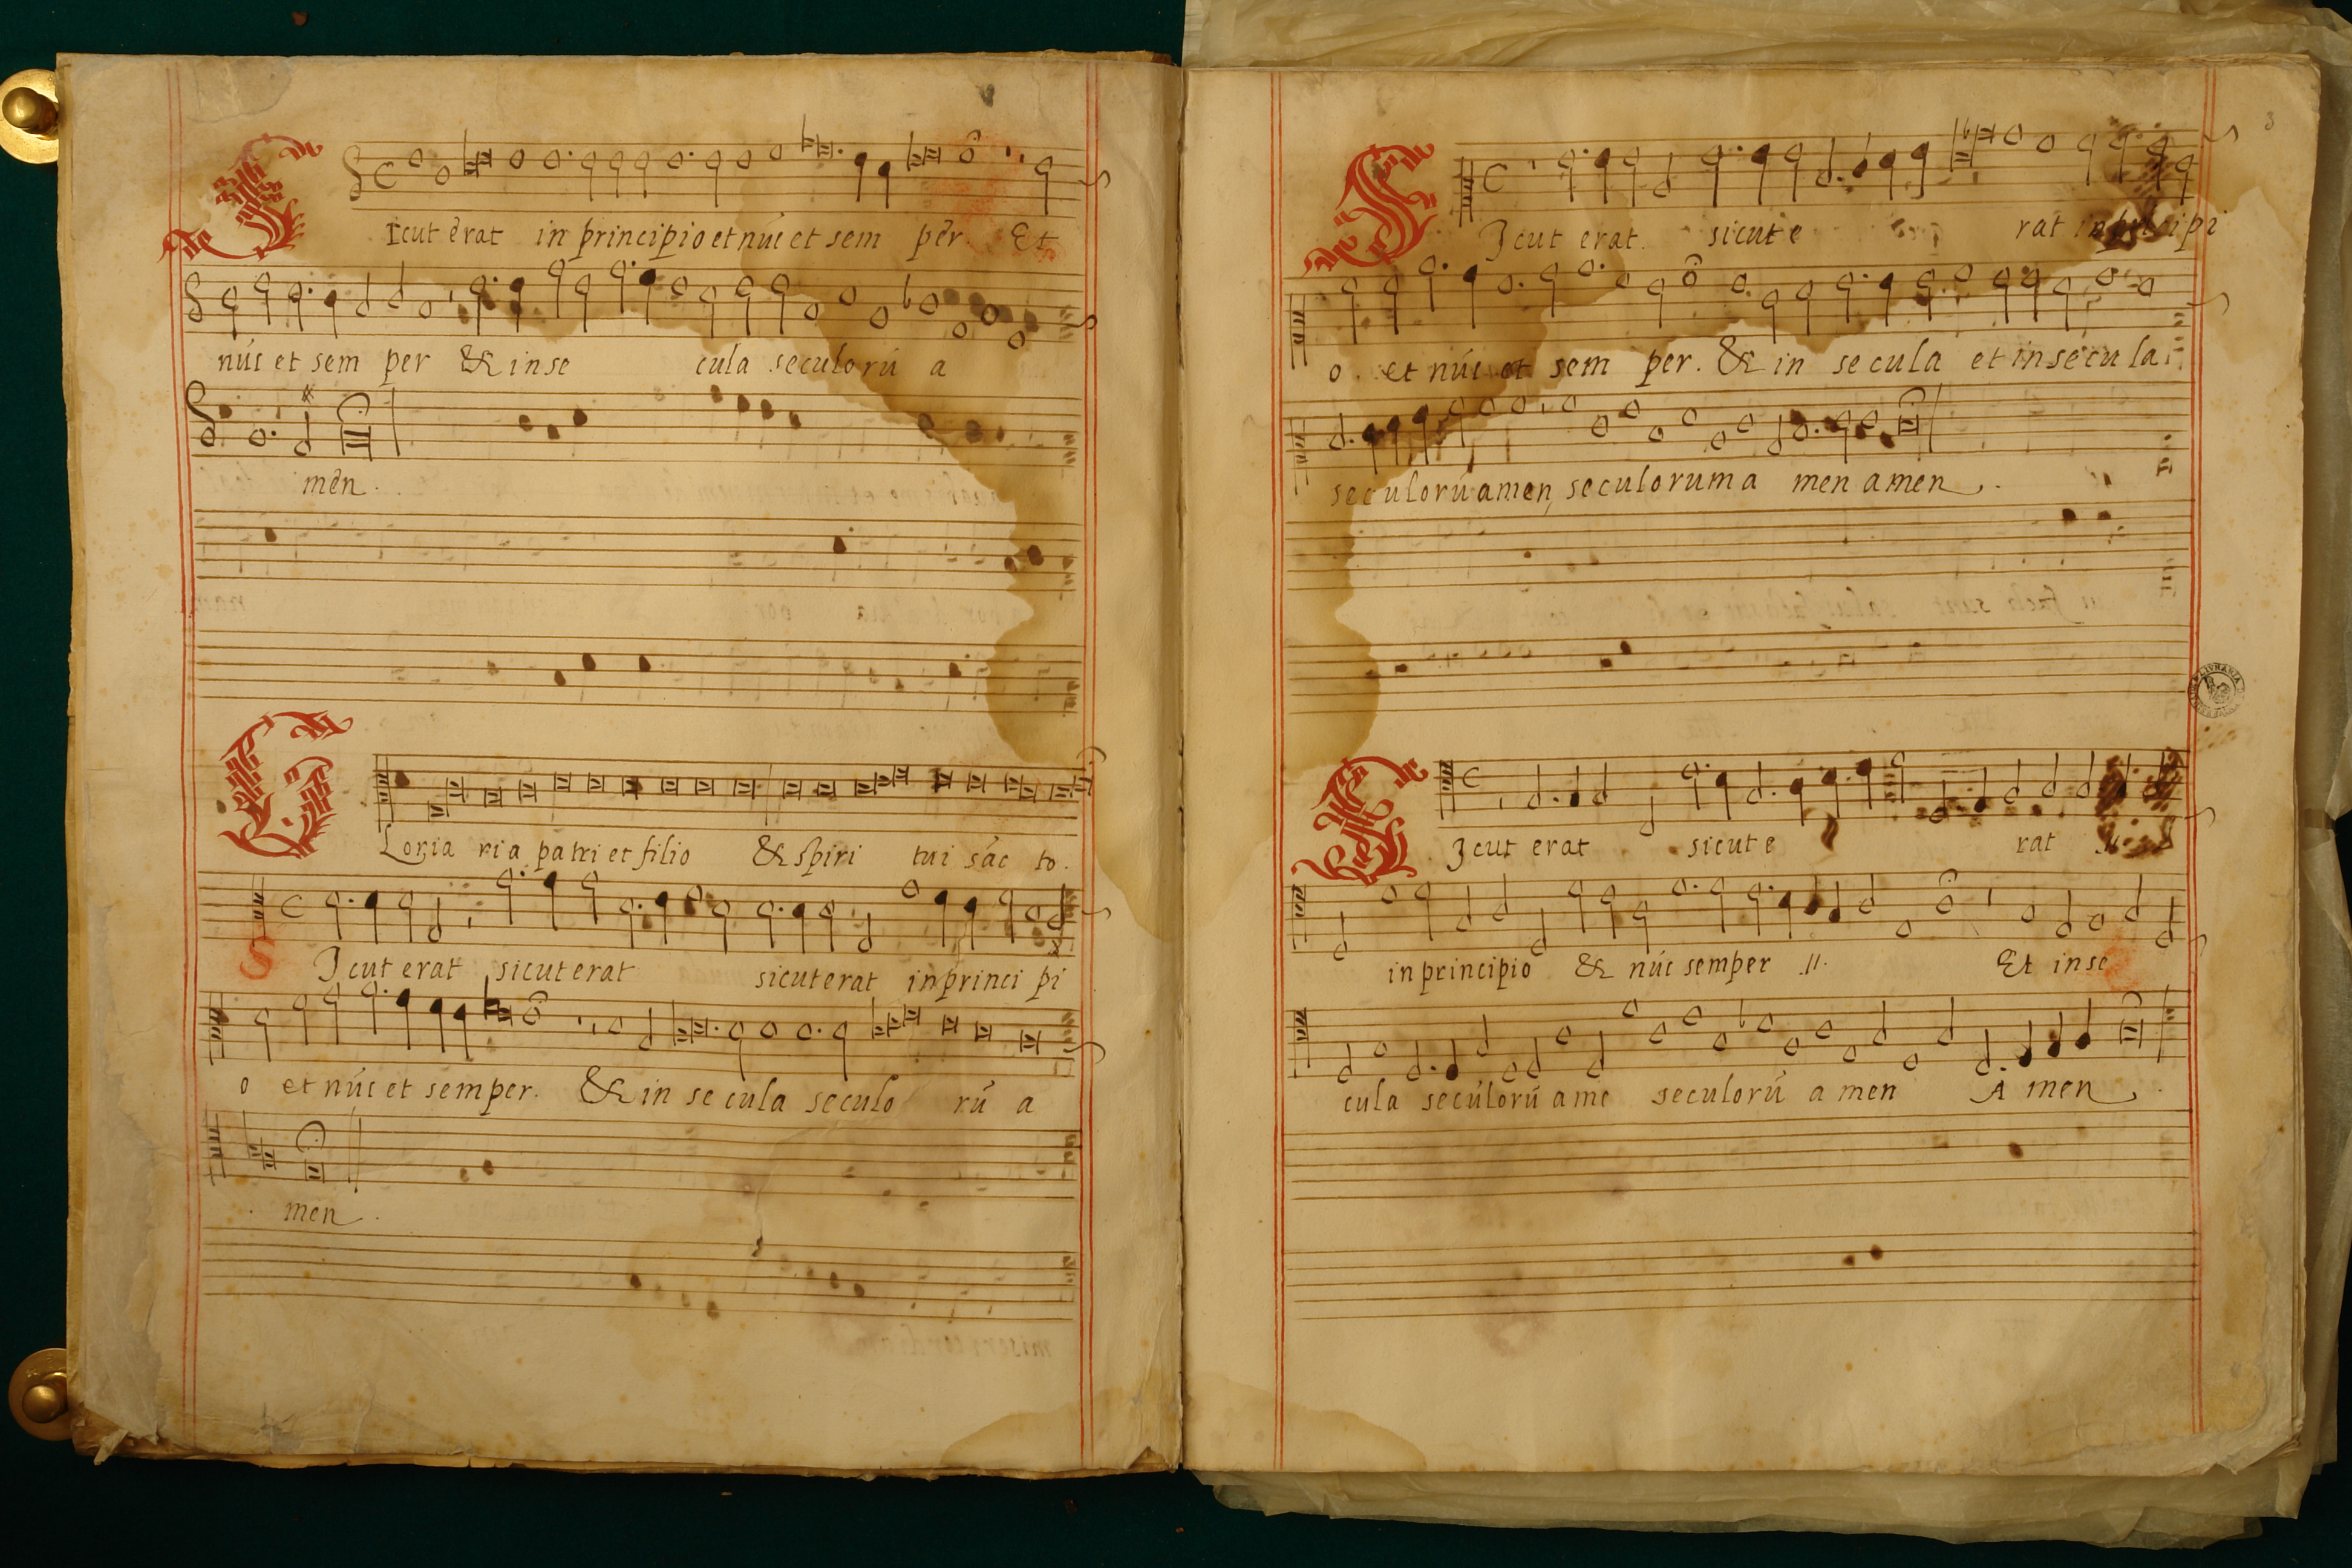 SIcut erat in principio et nūc et sem per. Et
nūc et sem per & in se cula seculorū a
men.
GLoria ria patri et filio & spiri tui sāc to.
SIcut erat sicut erat sicut erat in princi pi
o et nūc et semper. & in se cula seculo rū a
men.
8
SIcut erat. sicut e rat in principi
o. et nūc et sem per. & in se cula et in secula.
seculorū amen, seculorum a men amen.
SIcut erat sicut e rat .II.
in principio & nūc semper .II. Et in se
cula seculorū ame seculorū a men A men.